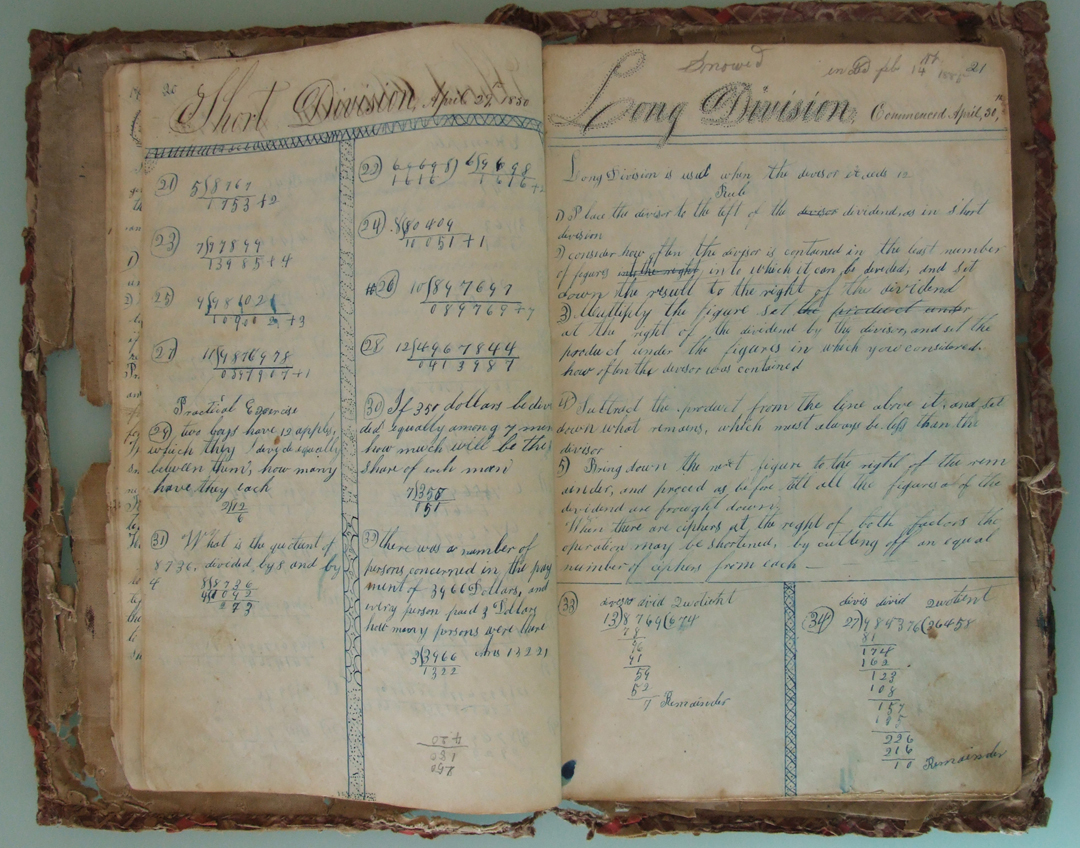 20
Short Division, April 29, 1850
21) 5)8767
1753+2
22) 6)9698
1616+2
23) 7)97899
13985+4
24) 8)80404
11051+1
25)
+3
#26 10)897697
089769+7
27)
+1
28 12)4967844
0413987
Practical Exercise
29) two boys have 12 apples,
which they divide equally
between them, how many
have they each
2)12
6
30 If 350 dollars be divi
ded equally among 7 men
how much will be the
share of each man
31) What is the quotient of
8736, divided by 8 and by
4
8)8736
4)1092
273
32 there was a number of
persons concerned in the pay
ment of 3966 Dollars, and
every person paid 3 Dollars
how many persons were there
3)3966 ans 1322
1322
250
180
420
Snowed
in Bd feb 14 1885
21
Long Division, Commenced April, 30,
Long Division is used when the divisor exceeds 12
Rule
1) Place the divisor to the left of the devisor dividend, as in short
division
2) consider how often the divisor is contained in the least number
of figures into the right, in to which it can be devided, and set
down the result to the right of the dividend
3) Multiply the figure set the product under
at the right of the dividend by the divisor, and set the
product under the figures in which you considered
how often the devisor was contained
4) Subtract the product from the line above it, and set
down what remains, which must always be less than the
divisor
5) Bring down the next figure to the right of the rem
ainder, and proceed as before, till all the figures of the
dividend are brought down
When there are ciphers at the right of both factors the
operation may be shortened, by cutting off an equal
number of ciphers from each
33 divid Quotient
13)8769(674
78
96
91
59
52
7 Remainder
34 divis divid Quotient
27)(26458
81
174
162
123
108
157
135
226
216
10 Remainder